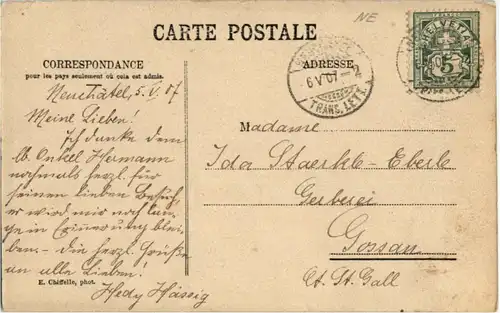 NE
CARTE POSTALE
CORRESPONDANCE
pour les pays seulement où cela est admis.
ADRESSE
6 V 07
TRANS. LETT.
HELVETIA
5
Neuchâtel, 5. V. 07
Meine Lieben!
Ich danke dem
lb. Onkel Hermann
nochmals herzl. für
seinen lieben Besuch,
er wird mir noch lan-
ge in Erinnerung blei-
ben. - Die herzl. Grüße
an alle Lieben!
Hedy
E. Chiffelle, phot.
Madame
Ida Staerkle-Eberle
Gerberei
Gossau
Ct. St. Gall